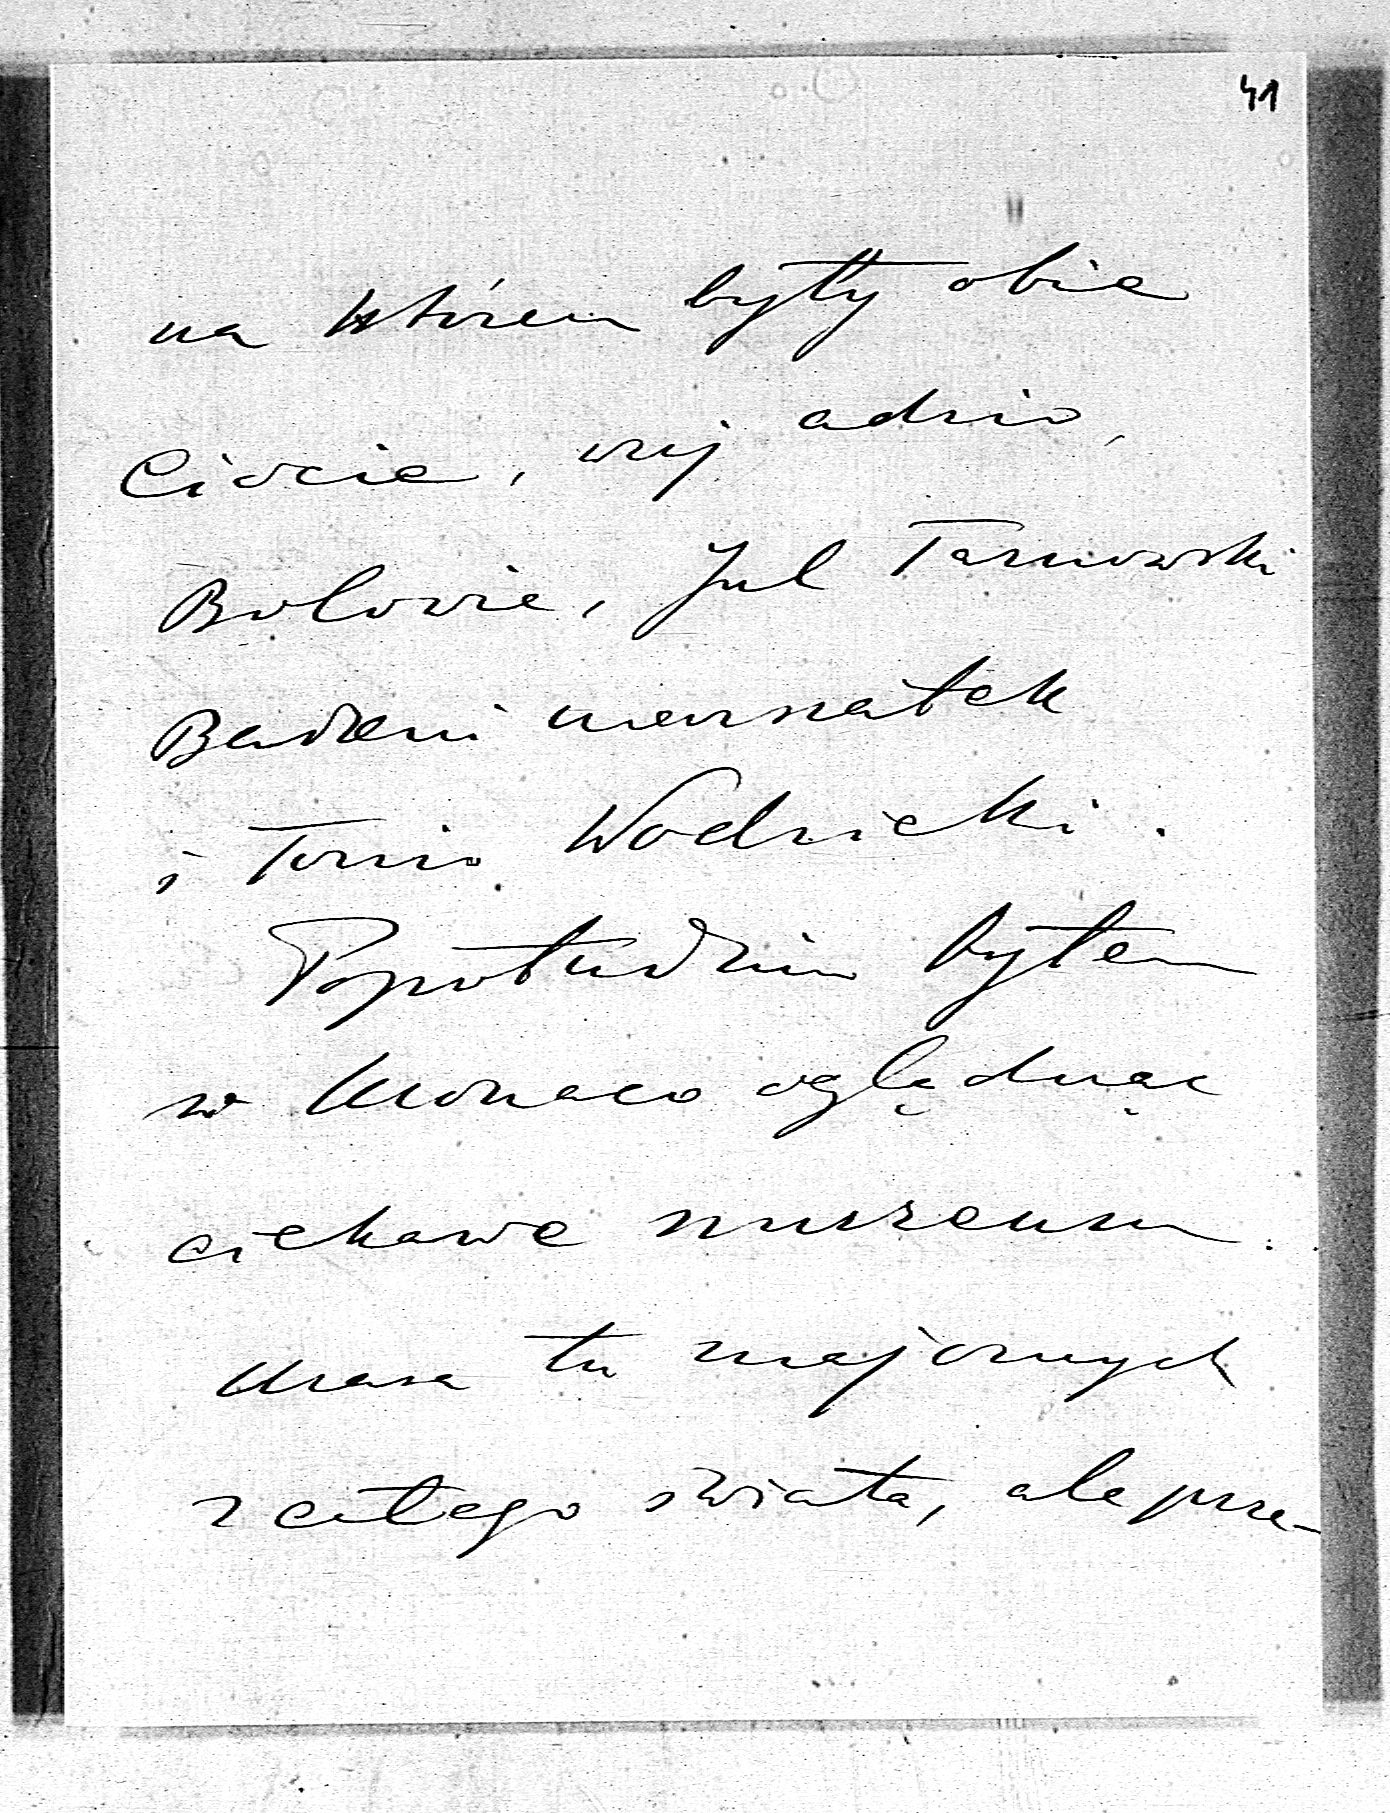 41
na którem były obie
Ciocie, wuj Adzio,
Bolowie, Jul Tarnowski
Badeni marszałek
i Tonio Wodzicki.
Popołudniu byłem
w Monaco oglądnąć
ciekawe muzeum.
Masa tu znajomych
z całego świata, ale prze-